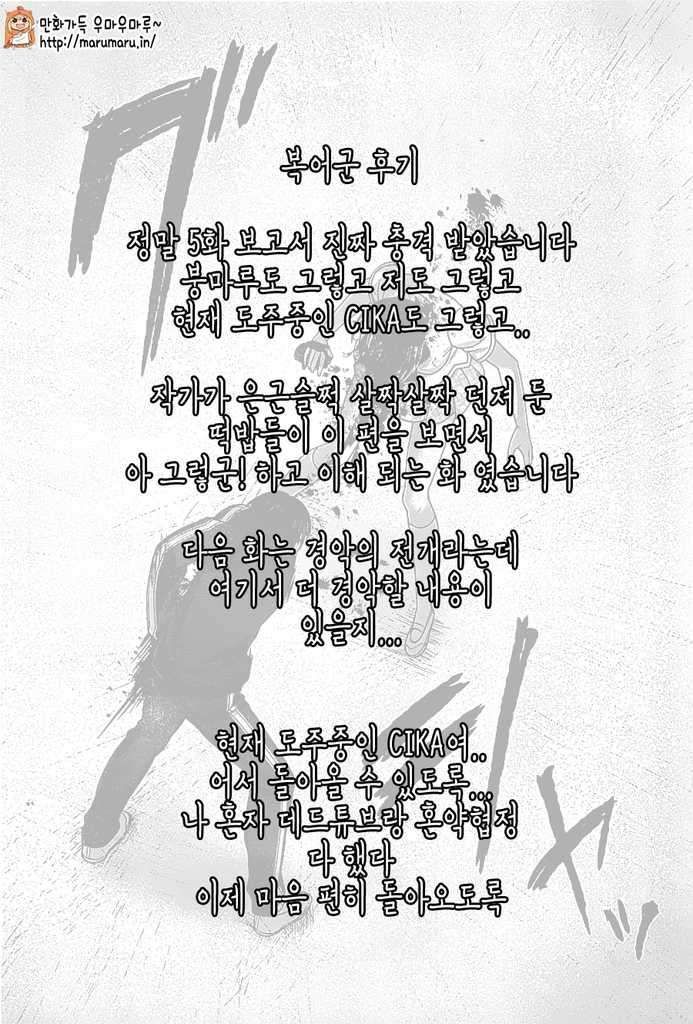 만화가득 우마우마루~
http://marumaru.in/
복어군 후기
정말 5화 보고서 진짜 충격 받았습니다
붕마루도 그렇고 저도 그렇고
현재 도주중인 CIKA도 그렇고..
작가가 은근슬쩍 살짝살짝 던저 둔
떡밥들이 이 편을 보면서
아 그렇군! 하고 이해 되는 화 였습니다
다음 화는 경악의 전개라는데
여기서 더 경악할 내용이
있을지...
현재 도주중인 CIKA여..
어서 돌아올 수 있도록...
나 혼자 데드튜브랑 혼약협정
다 했다
이제 마음 편히 돌아오도록